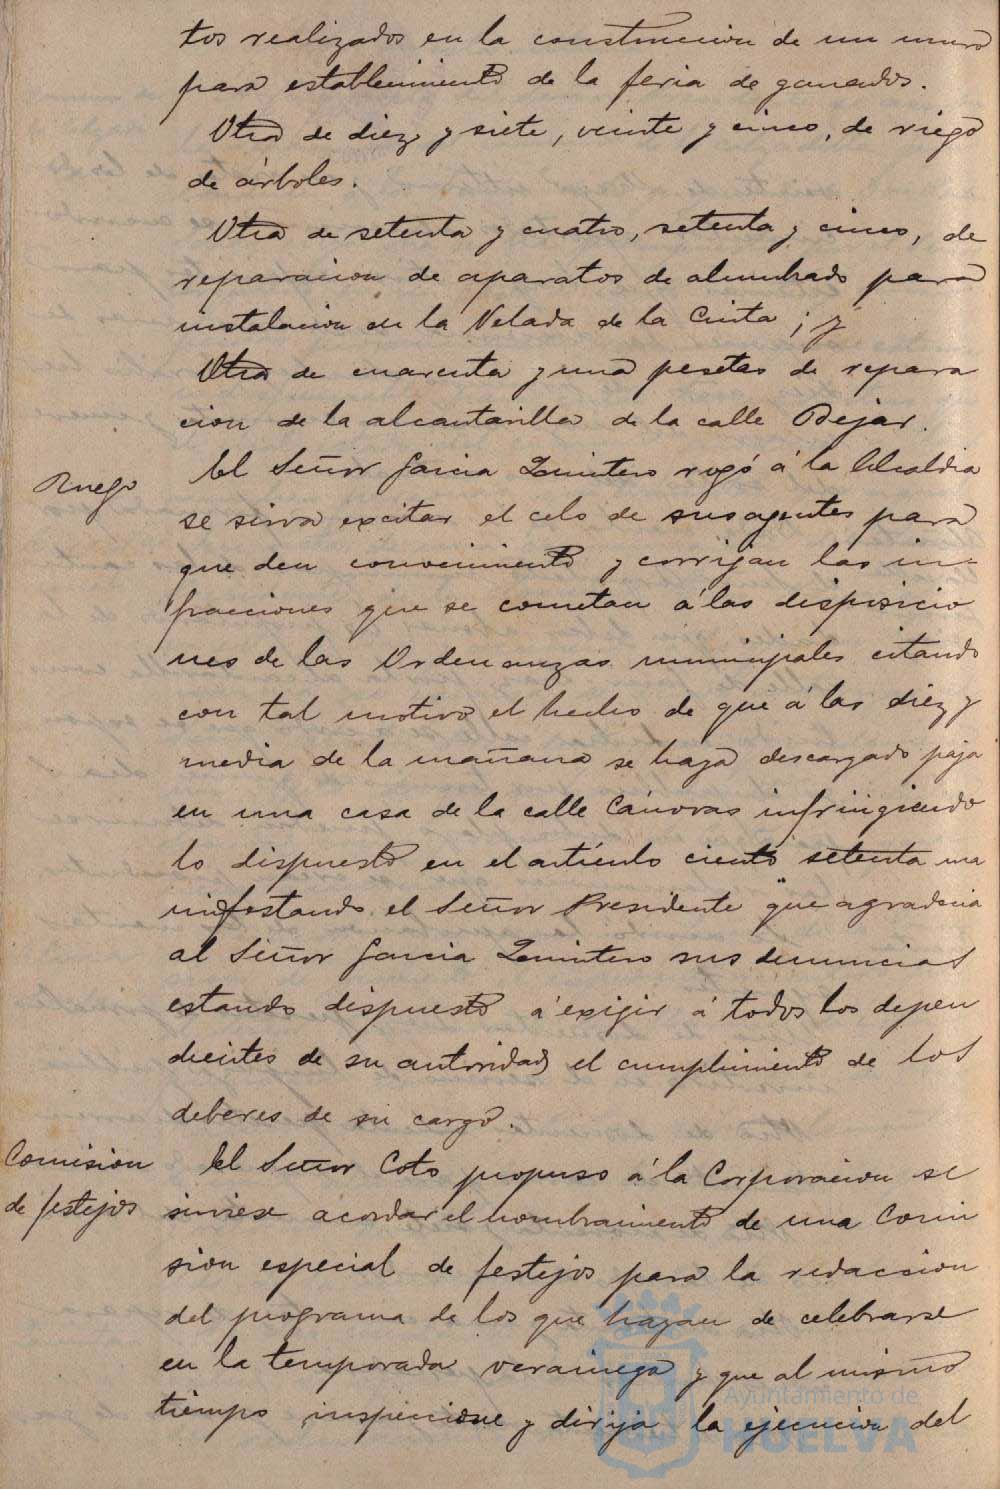 tos realizados en la construccion de un muro
para establecimiento de la feria de ganados.
Otra de diez y siete, veinte y cinco, de riego
de árboles.
Otra de setenta y cuatro, setenta y cinco, de
reparacion de aparatos de alumbrado para
instalacion en la Velada de la Cinta; y
Otra de cuarenta y una pesetas de repara
cion de la alcantarilla de la calle Bejar.
Ruego
El Señor Garcia Quintero rogó á la Alcaldia
se sirva excitar el celo de sus agentes para
que den conocimiento y corrijan las in-
fracciones que se cometan á las disposicio
nes de las Ordenanzas municipales citando
con tal motivo el hecho de que á las diez y
media de la mañana se haya descargado paja
en una casa de la calle Cánovas infringiendo
lo dispuesto en el artículo ciento setenta ma
nifestando el Señor Presidente que agradecia
al Señor Garcia Quintero sus denuncias
estando dispuesto á exigir á todos los depen
dientes de su autoridad el cumplimiento de los
deberes de su cargo.
Comision
de festejos
El Señor Coto propuso á la Corporacion se
sirviese acordar el nombramiento de una Comi
sion especial de festejos para la redaccion
del programa de los que hayan de celebrarse
en la temporada veraniega y que al mismo
tiempo inspeccione y dirija la ejecucion del
Ayuntamiento de
HUELVA